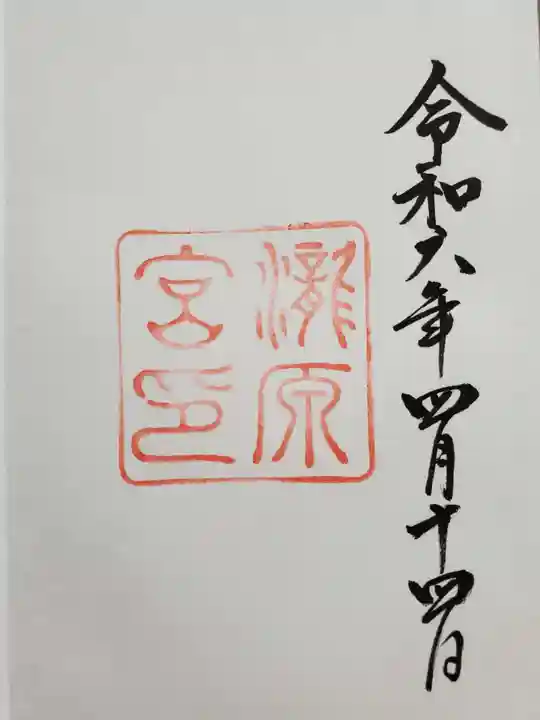 令和六年四月十四日
瀧原
宮印